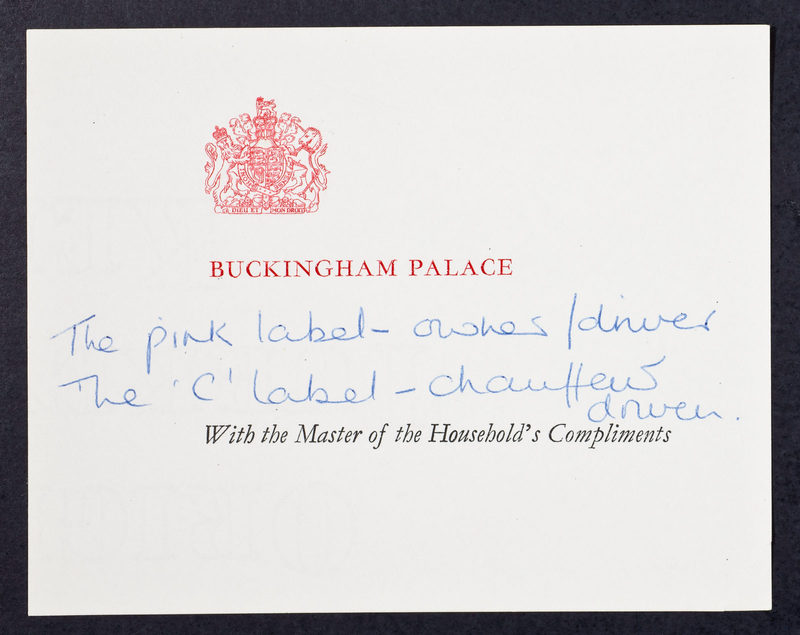 DIEU ET MON DROIT
BUCKINGHAM PALACE
The pink label - owner/driver
The 'C' label - chauffeur
driven.
With the Master of the Household's Compliments